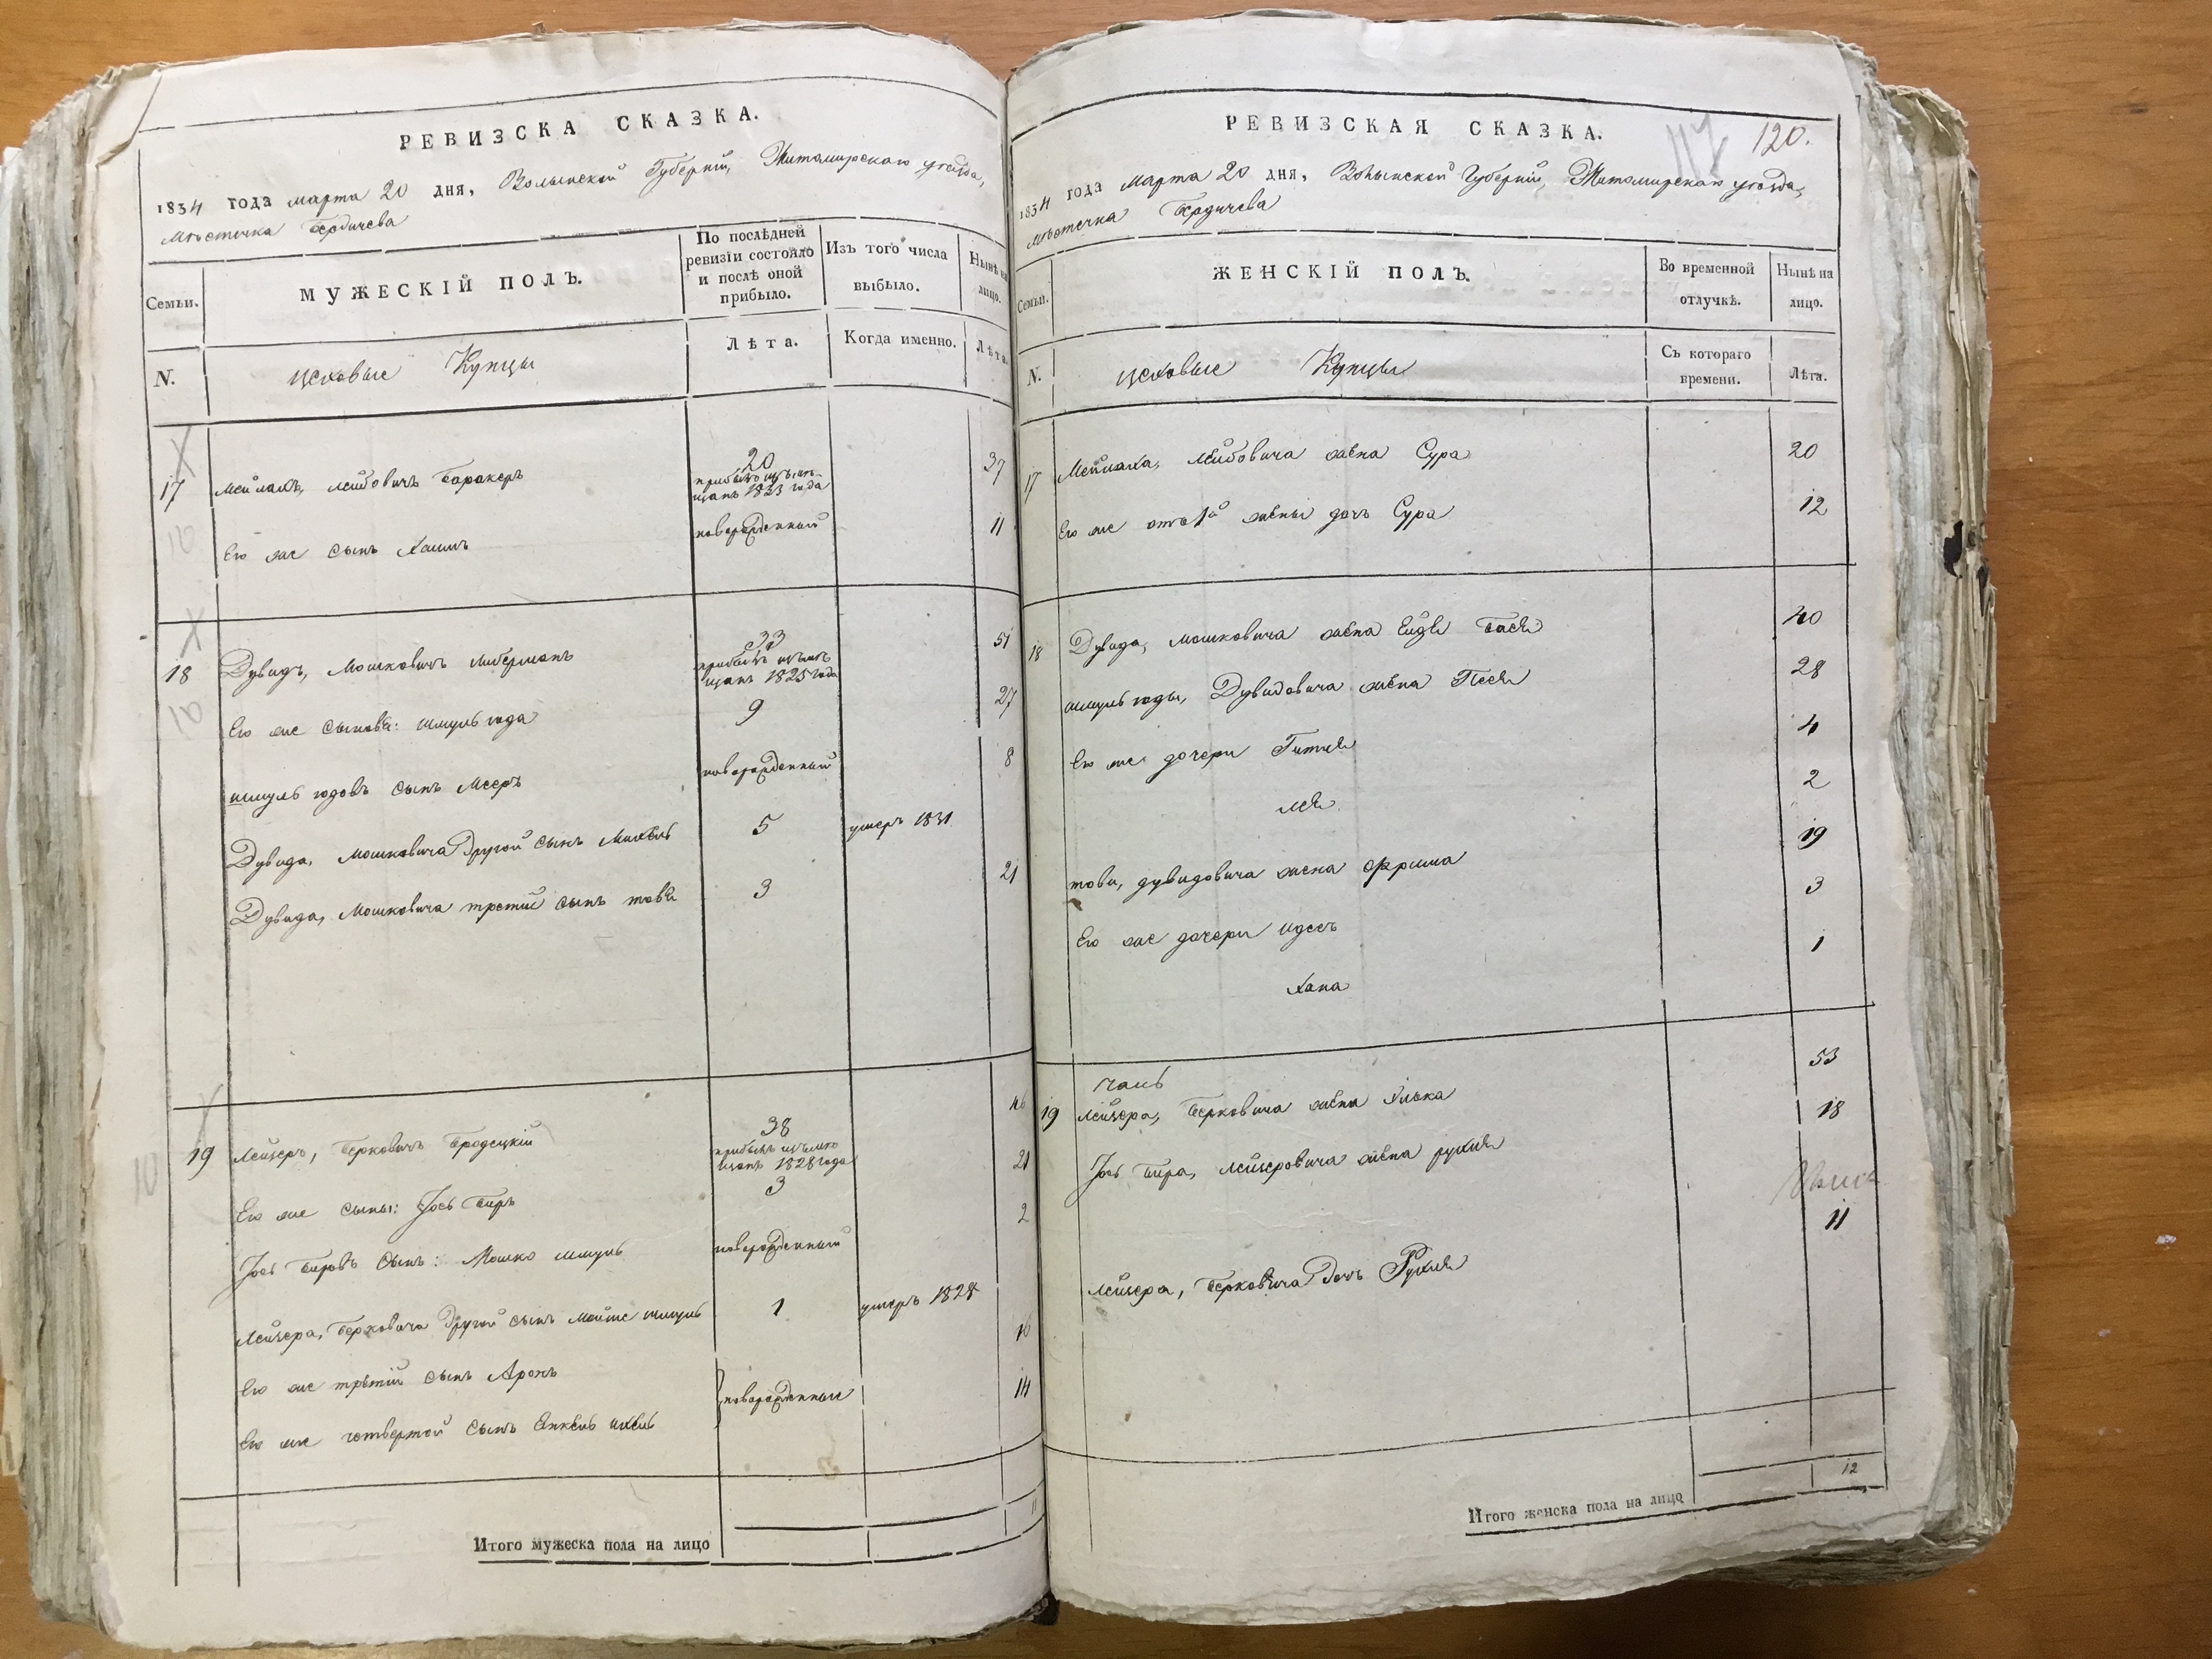 РЕВИЗСКА СКАЗКА.
1834 года марта 20 дня, Волынской Губерніи, Житомирскаго уѣзда,
мѣстечка Бердичева
Семьи.
МУЖЕСКІЙ ПОЛЪ.
По послѣдней
ревизіи состояло
и послѣ оной
прибыло.
Изъ того числа
выбыло.
Нынѣ на
лицо.
N.
Купцы
Лѣта.
Когда именно.
Лѣта.
17
Мейлахъ, Лейбовичъ
20
прибылъ изъ мѣ-
щанъ 1823 года
37
Его же сынъ Хаимъ
новорожденный
11
18
Дувидъ, Мошковичъ Либерманъ
33
прибылъ изъ мѣ
щанъ 1825 года
51
Его же сыновья: Шмуль года
9
27
Шмуль годовъ сынъ Мееръ
новорожденный
8
Дувида, Мошковича другой сынъ Михель
5
умеръ 1831
Дувида, Мошковича третій сынъ товія
3
21
19
Лейзеръ, Берковичъ Бродецкій
38
прибылъ изъ мѣ
щанъ 1828 года
46
Его же сыны: Іось Беръ
3
21
Іось Беровъ сынъ: Мошко Шмуль
новорожденный
2
Лейзера, Берковича другой сынъ Шмуль
1
умеръ 1828
Его же третій сынъ Аронъ
16
новорожденные
Его же четвертой сынъ Янкель Ихель
14
Итого мужеска пола на лицо
11
РЕВИЗСКАЯ СКАЗКА.
120.
1834 года марта 20 дня, Волынской Губерніи, Житомирскаго уѣзда,
мѣстечка Бердичева
Семьи.
ЖЕНСКІЙ ПОЛЪ.
Во временной
отлучкѣ.
Нынѣ на
лицо.
N.
Купцы
Съ котораго
времени.
Лѣта.
17
Мейлаха, Лейбовича жена Сура
20
Его же отъ 1й жены дочь Сура
12
18
Дувида, Мошковича жена Ейдля Бася
40
Шмуль годы, Дувидовича жена Песя
28
Его же дочери Гитля
4
Лея
2
тови, дувидовича жена Фрима
19
Его же дочери Идесъ
3
Хана
1
19
Лейзера, Берковича жена
53
Іось Бера, Лейзеровича жена рухля
18
Лейзера, Берковича дочь Рухля
11
Итого женска пола на лицо
12